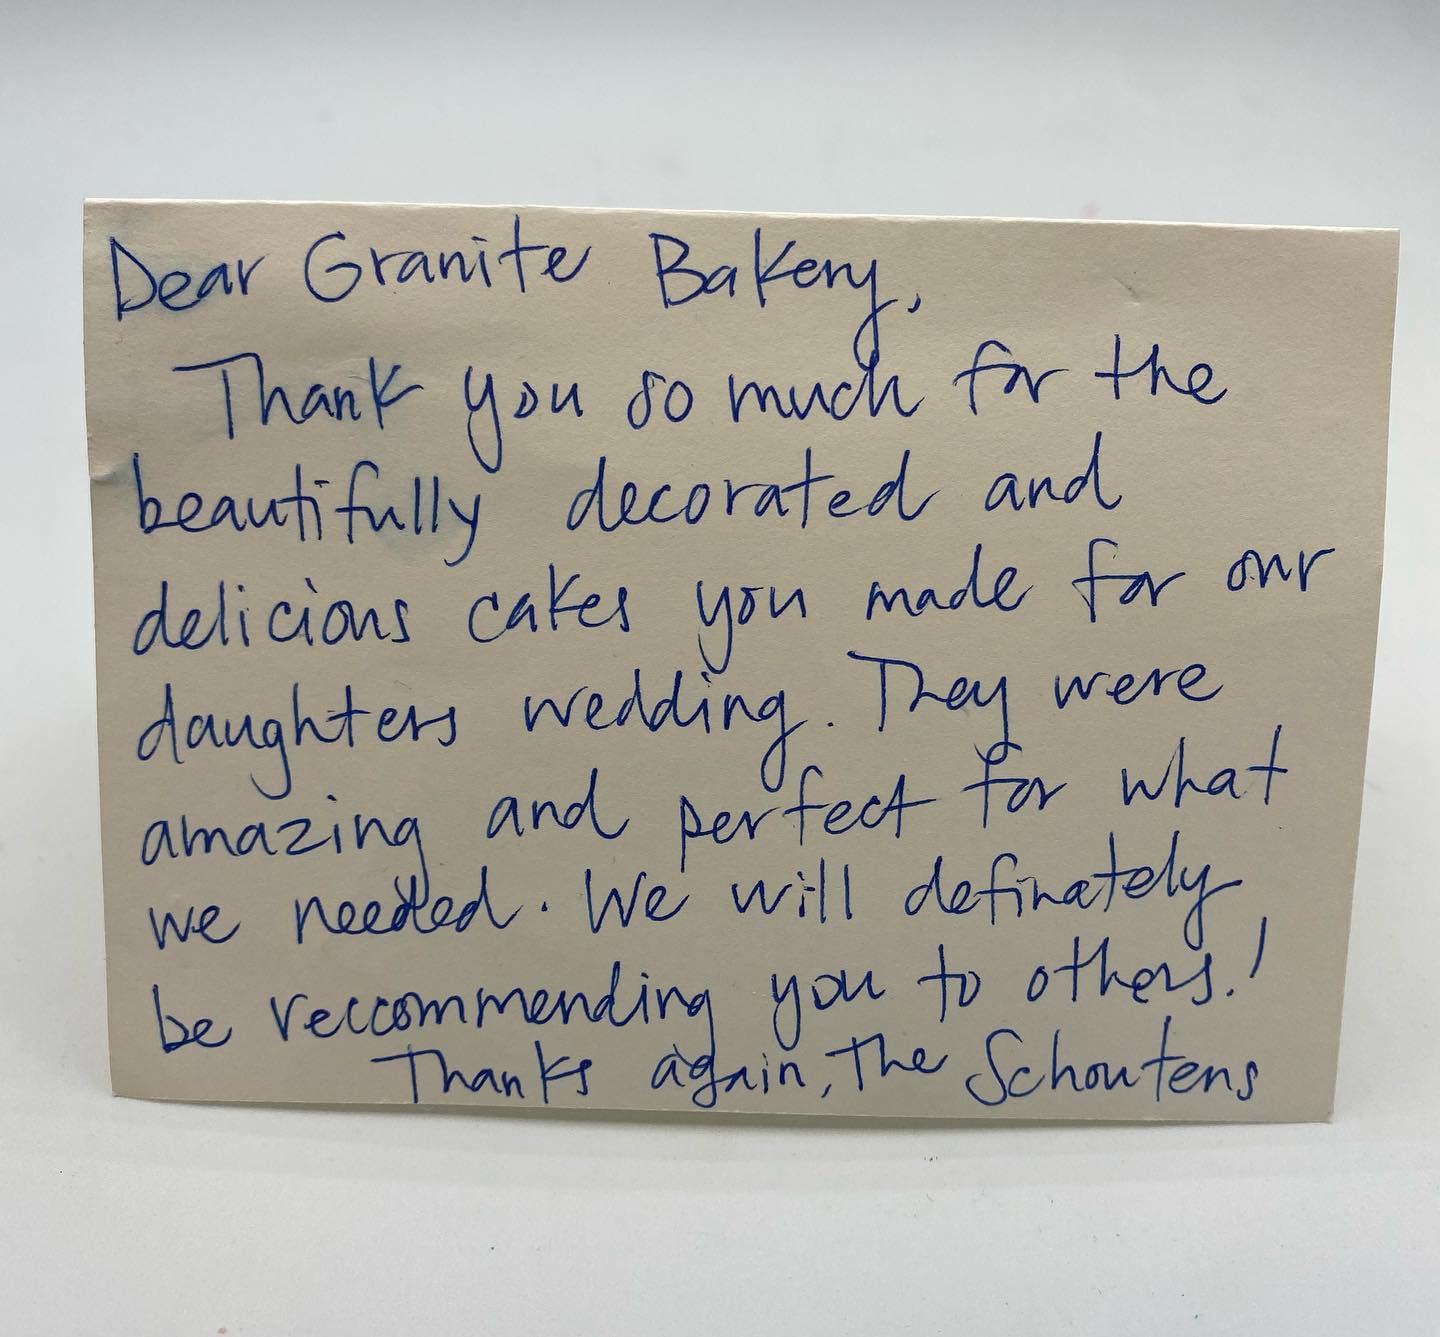 Dear Granite Bakery,
Thank you so much for the
beautifully decorated and
delicious cakes you made for our
daughters wedding. They were
amazing and perfect for what
we needed. We will definately
be reccommending you to others.!
Thanks again, The Schoutens